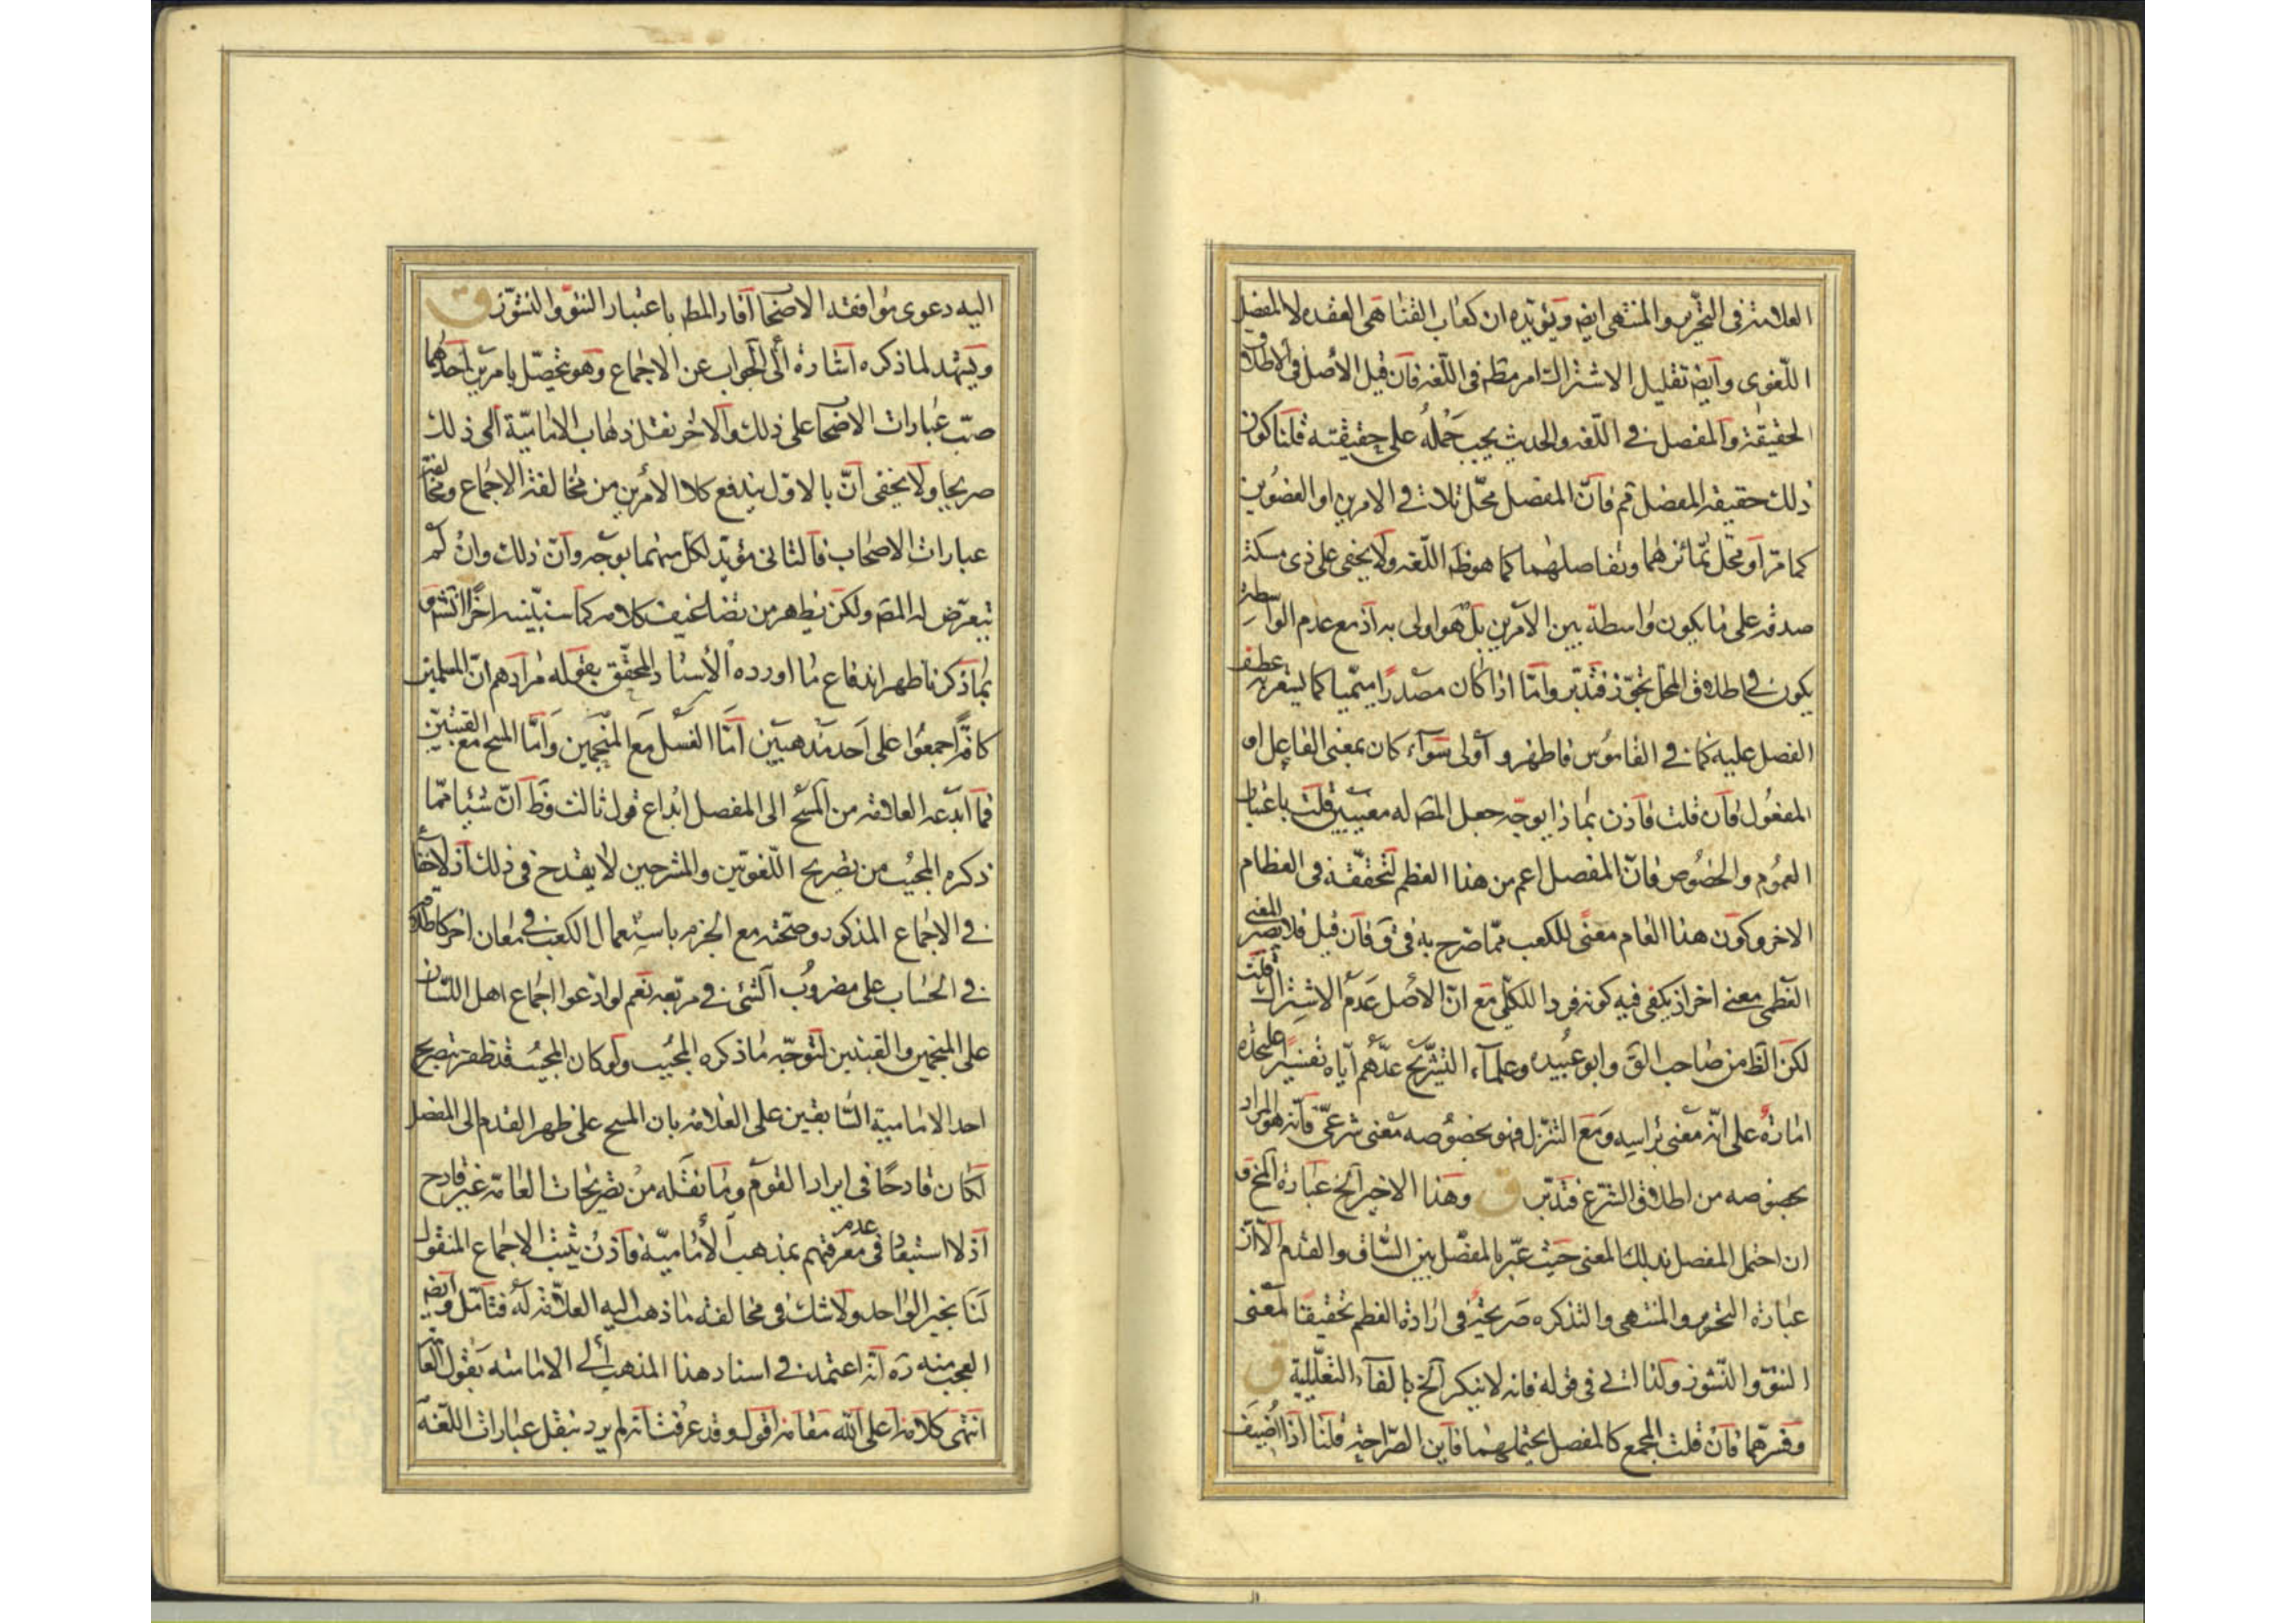 العلامة في التحرير والمنتهى ايض ويؤيده ان كعاب القنا هى العقده لا المفصل
اللّغوى وايض تقليل الاشتراك امر مظم فى اللّغه فان قيل الأصل فى الاطلاق
الحقيقة والمفصل فے اللّغه والحديث يجب حَمْلُه على حقيقته قلنا كون
ذلك حقيقة المفصل ثم فانّ المفصل محّل تلاث فے الامرين او العضوين
كما مّر او محّل تمّائزهما وتفاصلهما كما هو ظ اللّغه ولا يخفى على ذى مسكة
صدقه على ما يكون واسطة بين الأمرين بل هو اولى به اذ مع عدم الواسطة
يكون فے اطلاق المحل تجّوز فتدبّر وامّا اذا كان مصدرًا ميميا كما يشعر به عطف
الفصل عليه كما فے القاموس فاظهر و اولى سَواء كان بمعنى الفاعل او
المفعول فان قلت فاذن بماذا يوجّه جعل المص له معنيين قلت باعتبار
العموم والخصوص فانّ المفصل اعم من هذا العظم لتحققه فى العظام
الاخر وكون هذا العام معنًى للكعب ممّا صّرح به فى ق فان قيل فلا يصير المعنى
العظمى معنے اخر اذ يكفى فيه كونه فردا للكلّى مع انّ الأصل عدم الاشتراك قلت
لكن الظ من صاحب الق وابو عبيده وعلماء التشريح عدّهم ايّاه تفسيرًا عليحده
امارة على انّه معنى براسه ومع التنزّل فهو بخصوصه معنى شرعىّ فانّه هو المراد
بخصوصه من اطلاق الشرع فتدبّر ق وهذا الاخير الخ عبارة المخ وَ
ان احتمل المفصل بذلك المعنى حيث عبّر بالمفصل بين السّاق والقدم الّا انّ
عبارة التحرير والمنتهى والتذكره صريحة فى ارادة العظم تحقيقًا لمعنى
النتوّ والنّشوز وكذا اتى فى قوله فانه لا ينكر الخ بالفاء التعليلية ق
وفسرهما فان قلت المجمع كالمفصل يحتملهما فاين الصّراحة قلنا اذا اضيف
اليه دعوى موافقة الاصحا افاد المط باعتبار النتوّ والنشوّز ق
ويشهد لما ذكره اشارة الى الجواب عن الاجماع وهو تحصّل بامرين احدهما
صبّ عبارات الاصحا على ذلك والاخر نقل ذهاب الاماميّة الى ذلك
صريحا ولا يخفى انّ بالاوّل يندفع كلا الأمرين من مخالفة الاجماع ومخالفة
عبارات الاصحاب فالثانى مؤيّد لكل منهما بوجه وان ذلك وان لم
يتعرّض له المص ولكن يظهر من تضاعيف كلامه كما سنبيّنه اخرًا ثم
بما ذكرنا ظهر اندفاع ما اورده الأستاد المحقّق بقوله مرادهم انّ المسلمين
كافّة اجمعُوا على احد مذهبين امّا الغسل مع المنجمين وامّا المسح مع القبتين
فما ابدعه العلامة من المسح الى المفصل ابداع قول ثالث وظ انّ شيئا ممّا
ذكره المجيب من تصريح اللّغويّين والمشرحين لا يقدح فى ذلك اذ لا خفا
فے الاجماع المذكور وصحّته مع الجزم باستعمال الكعب فے معان اخر كاطلاقه
فے الحساب على مضروب الشئ فے مربّعه نعم لو ادّعوا اجماع اهل اللّسان
على المنجمين والقبتين لتوجّه ما ذكره المجيب ولو كان المجيب قد ظفر بتصريح
احد الامامية السّابقين على العلامة بان المسح على ظهر القدم الى المفصل
لكان قادحًا فى ايراد القوم وما نقله من تصريحات العامّة غير قادح
اذ لا استبعاد فى عدم معرفتهم بمذهب الأماميّة فاذن يثبت الاجماع المنقول
لنا بخبر الواحد ولا شك فى مخالفة ما ذهب اليه العلّامة له فتامّل وايض
العجب منه ره انّه اعتمد فے اسناد هذا المذهب الى الاماميّه بقول العامّة
انتهى كلامه اعلى الله مقامه اقول وقد عرفت انّه لم يرد بنقل عبارات اللّغة